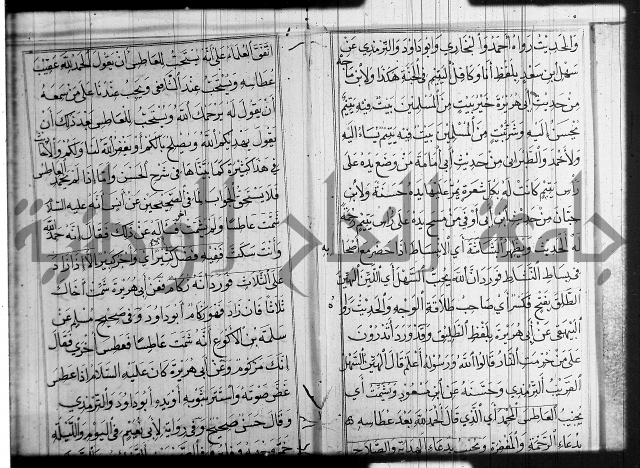 والحديث رواه احمد والبخاري وابوداود والترمذي عن
سهل بن سعد بلفظ انا وكافل اليتيم في الجنة هكذا ولابن ماجه
من حديث ابي هريرة خير بيت من المسلمين بيت فيه يتيم
يحسن اليه وشر بيت من المسلمين بيت فيه يتيم يساء اليه
ولاحمد والطبراني من حديث ابي امامة من وضع يده على
راس يتيم كانت له بكل شعرة يمر عليها يده حسنة ولابن
حبان من حديث ابن ابي اوفى من مسح يده على راس يتيم رحمة
له الحديث
في بساط النشاط فورد ان الله يحب السهل اي اللين الهين
الطلق بفتح فكسر اي صاحب طلاقة الوجه والحديث رواه
البيهقي عن ابي هريرة بلفظ الطليق وقد ورد اتدرون
على من حرمت النار قالوا الله ورسوله اعلم قال الهين السهل
القريب الترمذي وحسنه عن ابن مسعود ويشمت اي
يجيب العاطس المحمد اي الذي قال الحمد لله بعد عطاسه
بدعاء الرحمة والمغفرة ويجيب بدعاء الهداية والصلاح
اتفق العلماء على انه يستحب للعاطس ان يقول الحمد لله عقيب
عطاسه ويستحب عند الشافعي ويجب عندنا على من سمعه
ان يقول له يرحمك الله ويستحب للعاطس بعد ذلك ان
يقول يهديكم الله ويصلح بالكم او يغفر الله لنا ولكم والاحاديث
في هذا كثيرة كما بيناها في شرح الحصن واما اذا لم يحمد العاطس
فلا يستحق الجواب لما في الصحيحين عن انس انه عليه السلام
شمت عاطسا ولم يشمت اخر فسئل عن ذلك فقال انه حمد الله
وانت سكت
على الثلاث فورد انه زكام فعن ابي هريرة شمت اخاك
ثلاثا فان زاد فهو زكام ابو داود وفي صحيح مسلم عن
سلمة بن الاكوع انه شمت عاطسا فعطس اخرى فقال
انك مزكوم وعن ابي هريرة كان عليه السلام اذا عطس
غض صوته واستتر بثوبه او يده ابو داود والترمذي
وقال حسن صحيح وفي رواية لابي نعيم في اليوم والليلة
جامعة النجاح الوطنية